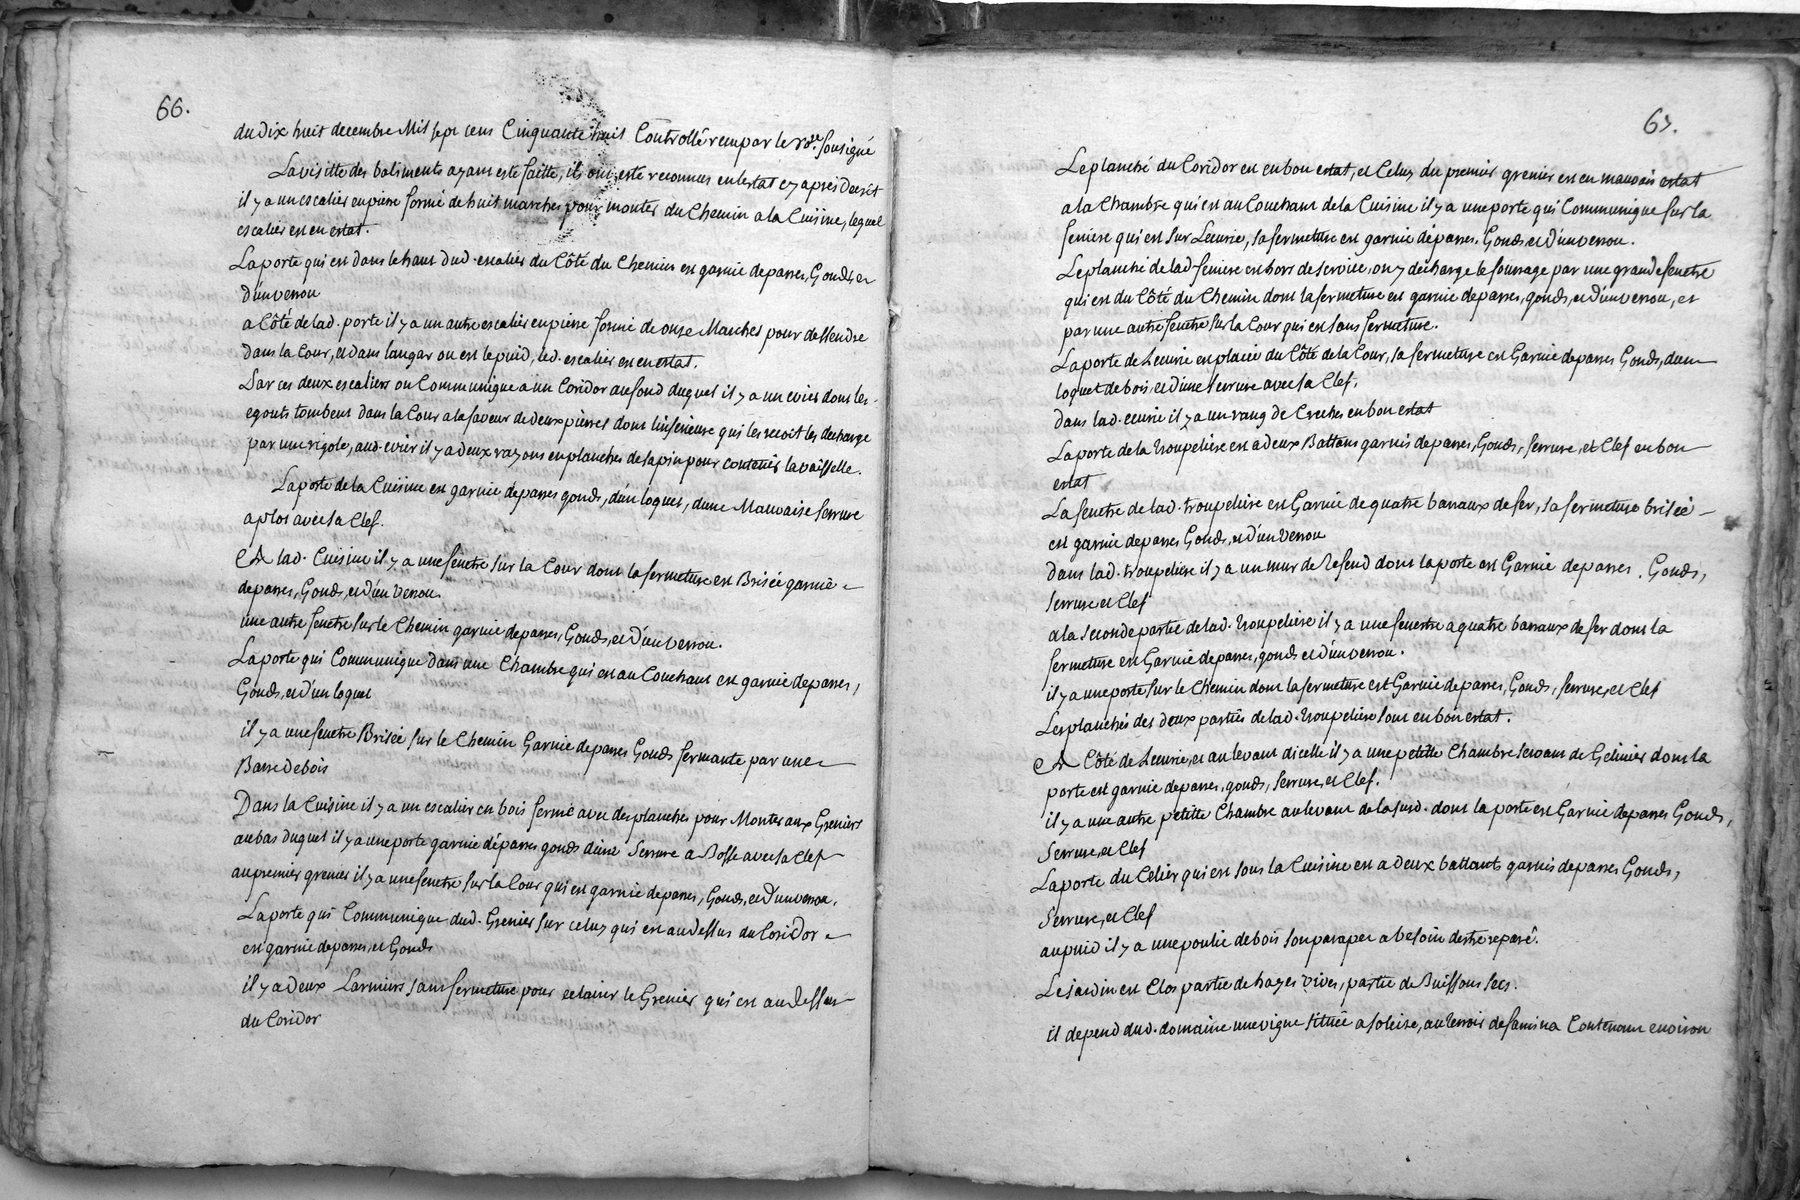 66.
du dix huit decembre Mil sept cens Cinquante huit Controllé reçu par le no.re sousigné
La visitte des batiments ayant esté faitte, ils ont esté reconnus en lestat cy après decrit
il y a un escalier en pierre formé de huit marches pour monter du Chemin a la Cuisine, lequel
escalier est en estat.
La porte qui est dans le haut dud. escalier du Côté du Chemin est garnie de parres, Gonds, et
d'un verrou
a Côté de lad. porte il y a un autre escalier en pierre formé de onze Marches pour dessendre
dans la Cour, et dans langar ou est le puid, led. escalier est en estat.
Par ces deux escaliers on Communique a un Coridor au fond duquel il y a un evier dont les
egouts tombent dans la Cour a la faveur de deux pierres dont l'inferieure qui les recoit les decharge
par une rigole, aud. evier il y a deux rayons en planches de sapin pour contenir la vaisselle.
La porte de la Cuisine est garnie de parres gonds, d'un loquet, d'une Mauvaise serrure
a plot avec sa Clef.
A lad. Cuisine il y a une fenetre sur la Cour dont la fermeture est Brisée garnie
de parres, Gonds, et d'un verrou.
une autre fenetre sur le Chemin garnie de parres, Gonds, et d'un verrou.
La porte qui Communique dans une Chambre qui est au Couchant est garnie de parres,
Gonds, et d'un loquet
il y a une fenetre Brisée sur le Chemin Garnie de parres Gonds fermante par une
Barre de bois
Dans la Cuisine il y a un escalier en bois fermé avec des planches pour Monter aux Greniers
au bas duquel il y a une porte garnie de parres gonds d'une Serrure a Bosse avec sa Clef
au premier grenier il y a une fenetre sur la Cour qui est garnie de parres, Gonds, et d'un verrou.
La porte qui Communique dud. Grenier sur celuy qui est au dessus du Coridor
est garnie de parres, et Gonds
il y a deux Larmiers sans fermeture pour eclairer le Grenier qui est au dessus
du Coridor
67.
Le planché du Coridor est en bon estat, et Celuy du premier grenier est en mauvais estat
a la Chambre qui est au Couchant de la Cuisine il y a une porte qui Communique sur la
feniere qui est sur Lecurie, sa fermeture est garnie de parres, Gonds, et d'un verrou.
Le planché de lad. feniere est hors de service, on y decharge le fourrage par une grande fenetre
qui est du Côté du Chemin dont la fermeture est garnie de parres, gonds, et d'un verrou, et
par une autre fenetre sur la Cour qui est sans fermeture.
La porte de Lecurie est placée du Côté de la Cour, sa fermeture est Garnie de parres Gonds, d'un
loquet de bois, et d'une serrure avec sa Clef.
dans lad. ecurie il y a un rang de Creches en bon estat
La porte de la troupeliere est a deux Battans garnis de parres, Gonds, serrure, et Clef en bon
estat
La fenetre de lad. troupeliere est Garnie de quatre barraux de fer, sa fermeture brisée
est garnie de parres Gonds, et d'un verrou
dans lad. troupeliere il y a un mur de Refend dont la porte est Garnie de parres, Gonds,
serrure, et Clef
a la seconde partie de lad. troupeliere il y a une fenestre a quatre barraux de fer dont la
fermeture est Garnie de parres, gonds et d'un verrou.
il y a une porte sur le Chemin dont la fermeture est Garnie de parres, Gonds, serrure, et Clef
Les planchés des deux parties de lad. troupeliere sont en bon estat.
A Côté de Lecurie, et au levant dicelle il y a une petitte Chambre servant de Gelinier dont la
porte est garnie de parres, gonds, serrure, et Clef.
il y a une autre petitte Chambre au levant de la susd. dont la porte est Garnie de parres Gonds,
Serrure, et Clef
La porte du Celier qui est sous la Cuisine est a deux battants garnis de parres Gonds,
Serrure, et Clef
au puid il y a une poulie de bois son parapet a besoin destre reparé.
Le jardin est Clos partie de hayes vives, partie de Buissons secs.
il depend dud. domaine une vigne située a soleize, au terroir de Contenant environ